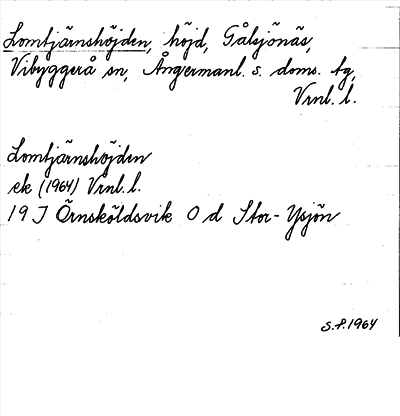 Lomtjärnshöjden, höjd, Gålsjönäs,
Vibyggerå sn, Ångermanl. s. doms. tg,
Vrnl. l.
Lomtjärnshöjden
ek (1964) Vrnl. l.
19 J Örnsköldsvik 0 d Stor-Ysjön
S.P. 1964